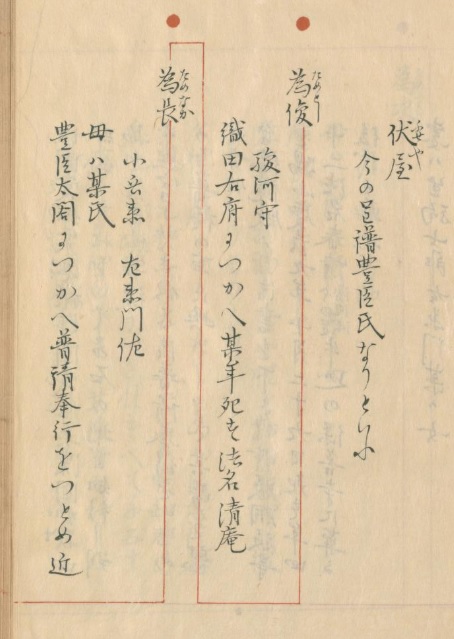 伏屋
今の呈譜豊臣氏なりといふ
為俊
ためとし
駿河守
織田右府につかへ某年死す法名清庵
為長
ためなか
小兵衛　左衛門佐
母ハ某氏
豊臣太閤につかへ普請奉行をつとめ近